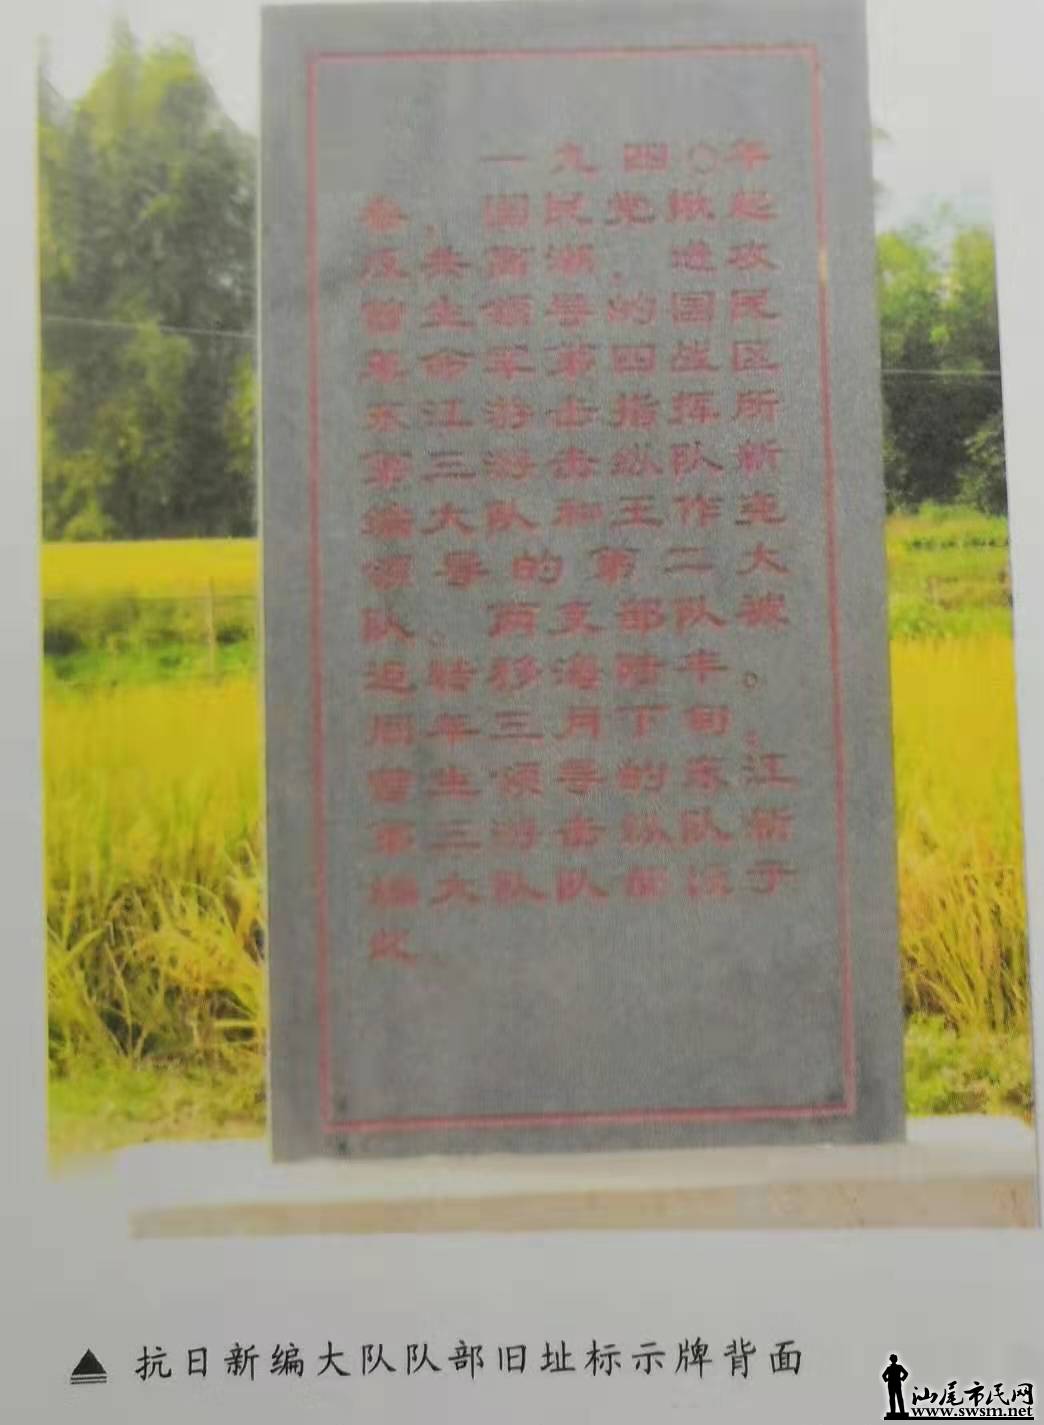 一九四〇年
春，国民党掀起
反共高潮，进攻
曾生领导的国民
革命军第四战区
东江游击指挥所
第三游击纵队新
编大队和王作尧
领导的第二大
队。两支部队被
迫转移海陆丰。
同年三月下旬，
曾生领导的东江
第三游击纵队新
编大队队部设于
此
抗日新编大队队部旧址标示牌背面
汕尾市民网
www.swsm.net